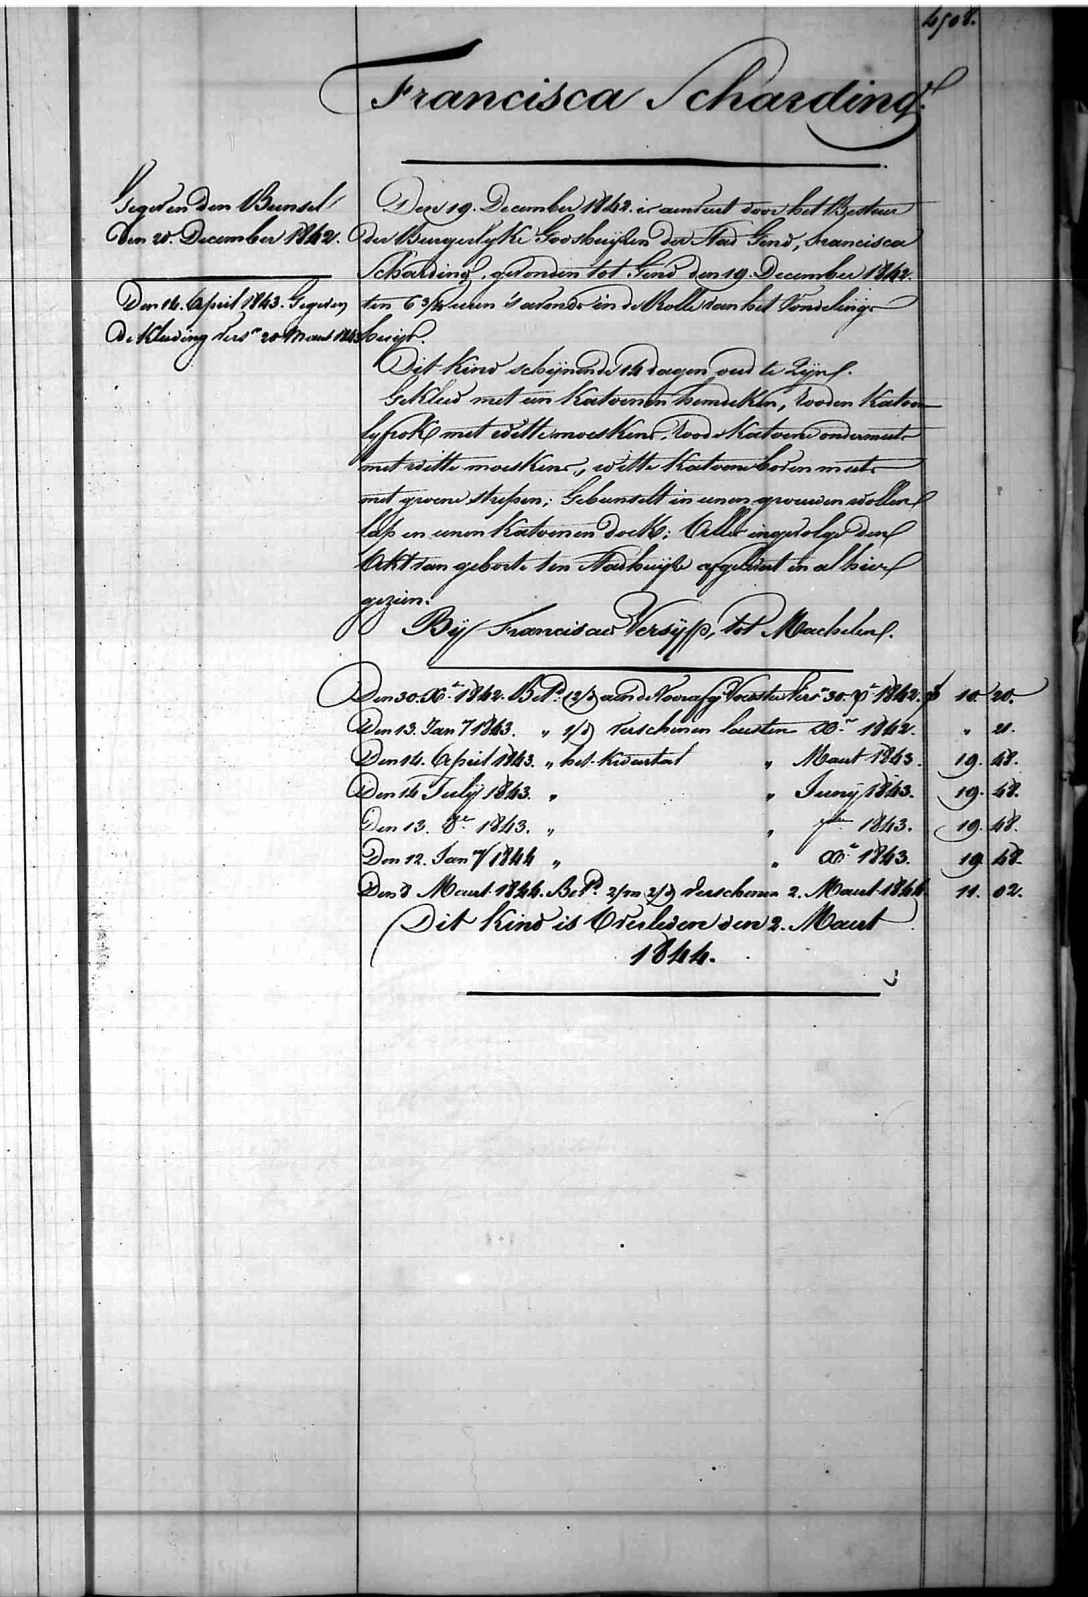 4508.
Francisca Scharding.
Gegeven den Bunsel
den 20. December 1842.
Den 14. April 1843. Gegeven
de Kleeding vers.n 20 Maert 1843
Den 19. December 1842. is aenveert door het Bestuer
der Burgerlyke Godshuyzen der Stad Gend, Francisca
Scharding, gevonden tot Gend den 19. December 1842.
ten 6 3/4 ueren s'avonds in de Rolle van het Vondelings-
huys.
Dit kind schynende 14 dagen oud te Zyn.
Gekleed met een Katoenen hemdeken, Rooden Katoenen
lyfrok met witte moeskens, Roode Katoene ondermuts
met witte moeskens, witte Katoene bovenmuts
met groene strepen; Gebunselt in eenen grauwen wollen
lap en eenen Katoenen doek; Alles ingevolge den
Akt van geboorte ten Stadhuyze afgeleverd en alhier
gezien.
By Francisca Versyp, tot Machelen.
Den 30. Xb. 1842. Bet.d 12/d aen de Voorafg. Voedster Vers.n 30. Xb 1842. 10 20.
Den 13. Jan.y 1843. " 1/d verschenen lausten Xb. 1842. " 21.
Den 14. April 1843. " het kwartael " Maert 1843. 19. 48.
Den 14 July 1843. " " Juny 1843. 19. 48.
Den 13. 8b. 1843. " " 7b. 1843. 19. 48.
Den 12. Jan.y 1844 " " Xb. 1843. 19. 48.
Den 8 Maert 1844. Bet.d 2/m 2/d verschenen 2. Maert 1844. 11. 02.
Dit Kind is Overleden den 2. Maert
1844.